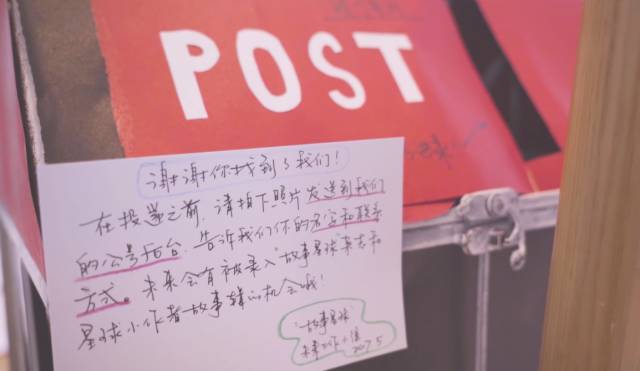 POST
谢谢你找到了我们!
在投递之前,请拍下照片发送到我们
的公号后台,告诉我们你的名字和联系
方式。未来会有被录入"故事星球"杂志和
星球小作者故事辑的机会哦!
"故事星球
2017.5